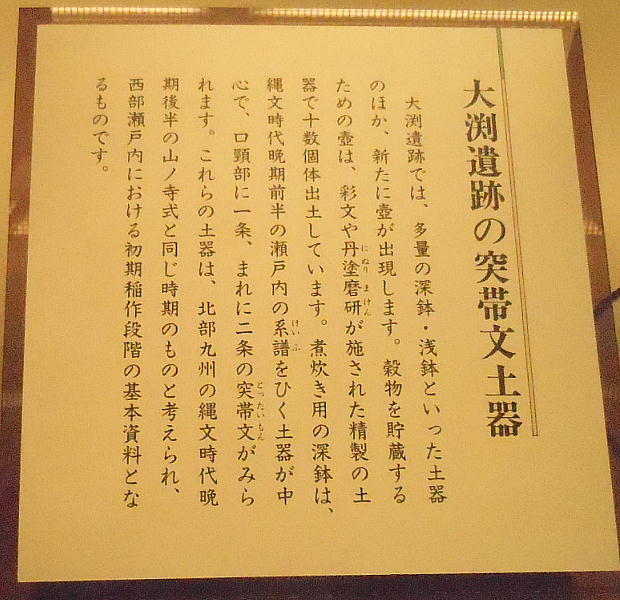 大渕遺跡の突帯文土器
大渕遺跡では、多量の深鉢・浅鉢といった土器
のほか、新たに壺が出現します。穀物を貯蔵する
ための壺は、彩文や丹塗磨研が施された精製の土
器で十数個体出土しています。煮炊き用の深鉢は、
縄文時代晩期前半の瀬戸内の系譜をひく土器が中
心で、口頸部に一条、まれに二条の突帯文がみら
れます。これらの土器は、北部九州の縄文時代晩
期後半の山ノ寺式と同じ時期のものと考えられ、
西部瀬戸内における初期稲作段階の基本資料とな
るものです。
にぬり まけん
けいふ
とったいもん